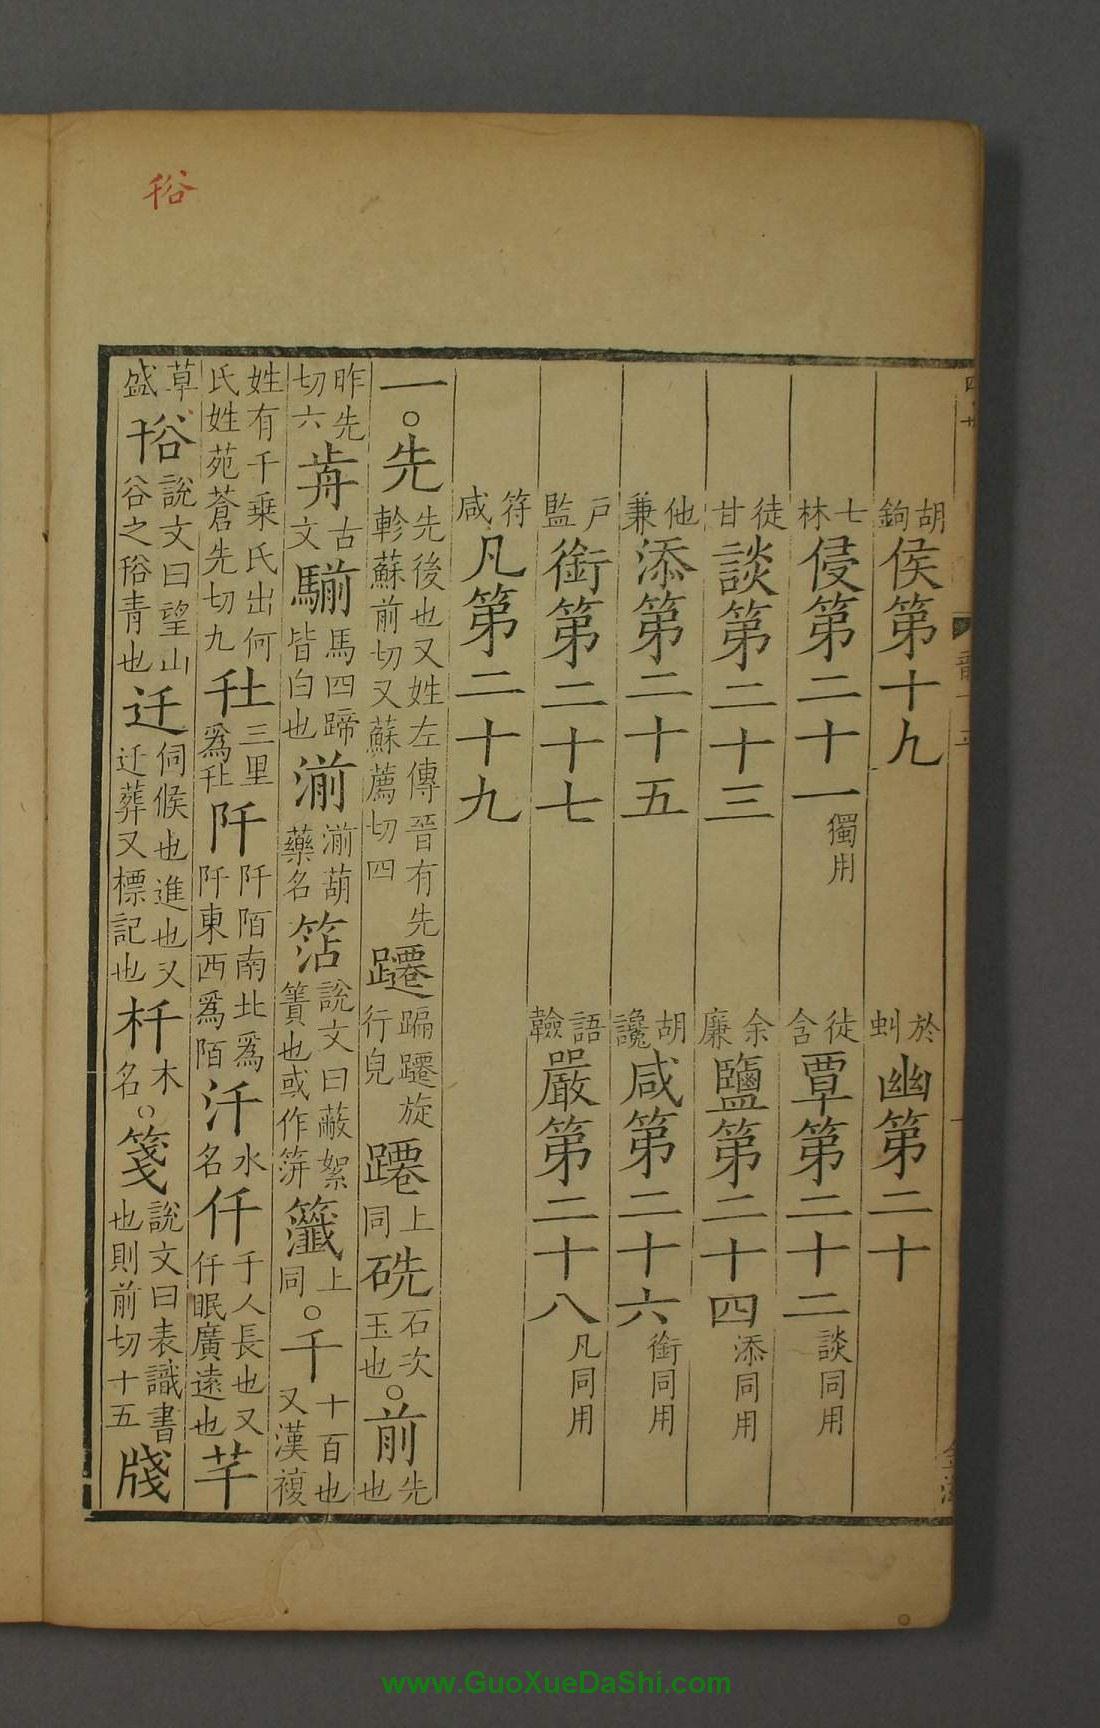 胡鉤侯第十九 於虯幽第二十
七林侵第二十一獨用 徒含覃第二十二談同用
徒甘談第二十三 余廉鹽第二十四添同用
他兼添第二十五 胡讒咸第二十六銜同用
戶監銜第二十七 語驗嚴第二十八凡同用
符咸凡第二十九
一○先先後也又姓左傳晉有先軫蘇前切又蘇薦切四躚蹁躚旋行皃䙴上同硄石次玉也○前先也
昨先切六歬古文騚馬四蹄皆白也湔湔葫藥名䇔說文曰蔽絮簀也或作笄籤上同○千十百也又漢複
姓有千乘氏出何氏姓苑蒼先切九圱三里爲圱阡阡陌南北爲阡東西爲陌汘水名仟千人長也又仟眠廣遠也芊
草盛谸說文曰望山谷之谸青也迁伺候也進也又迁葬又標記也杄木名○箋說文曰表識書也則前切十五牋
谸
www.GuoXueDaShi.com